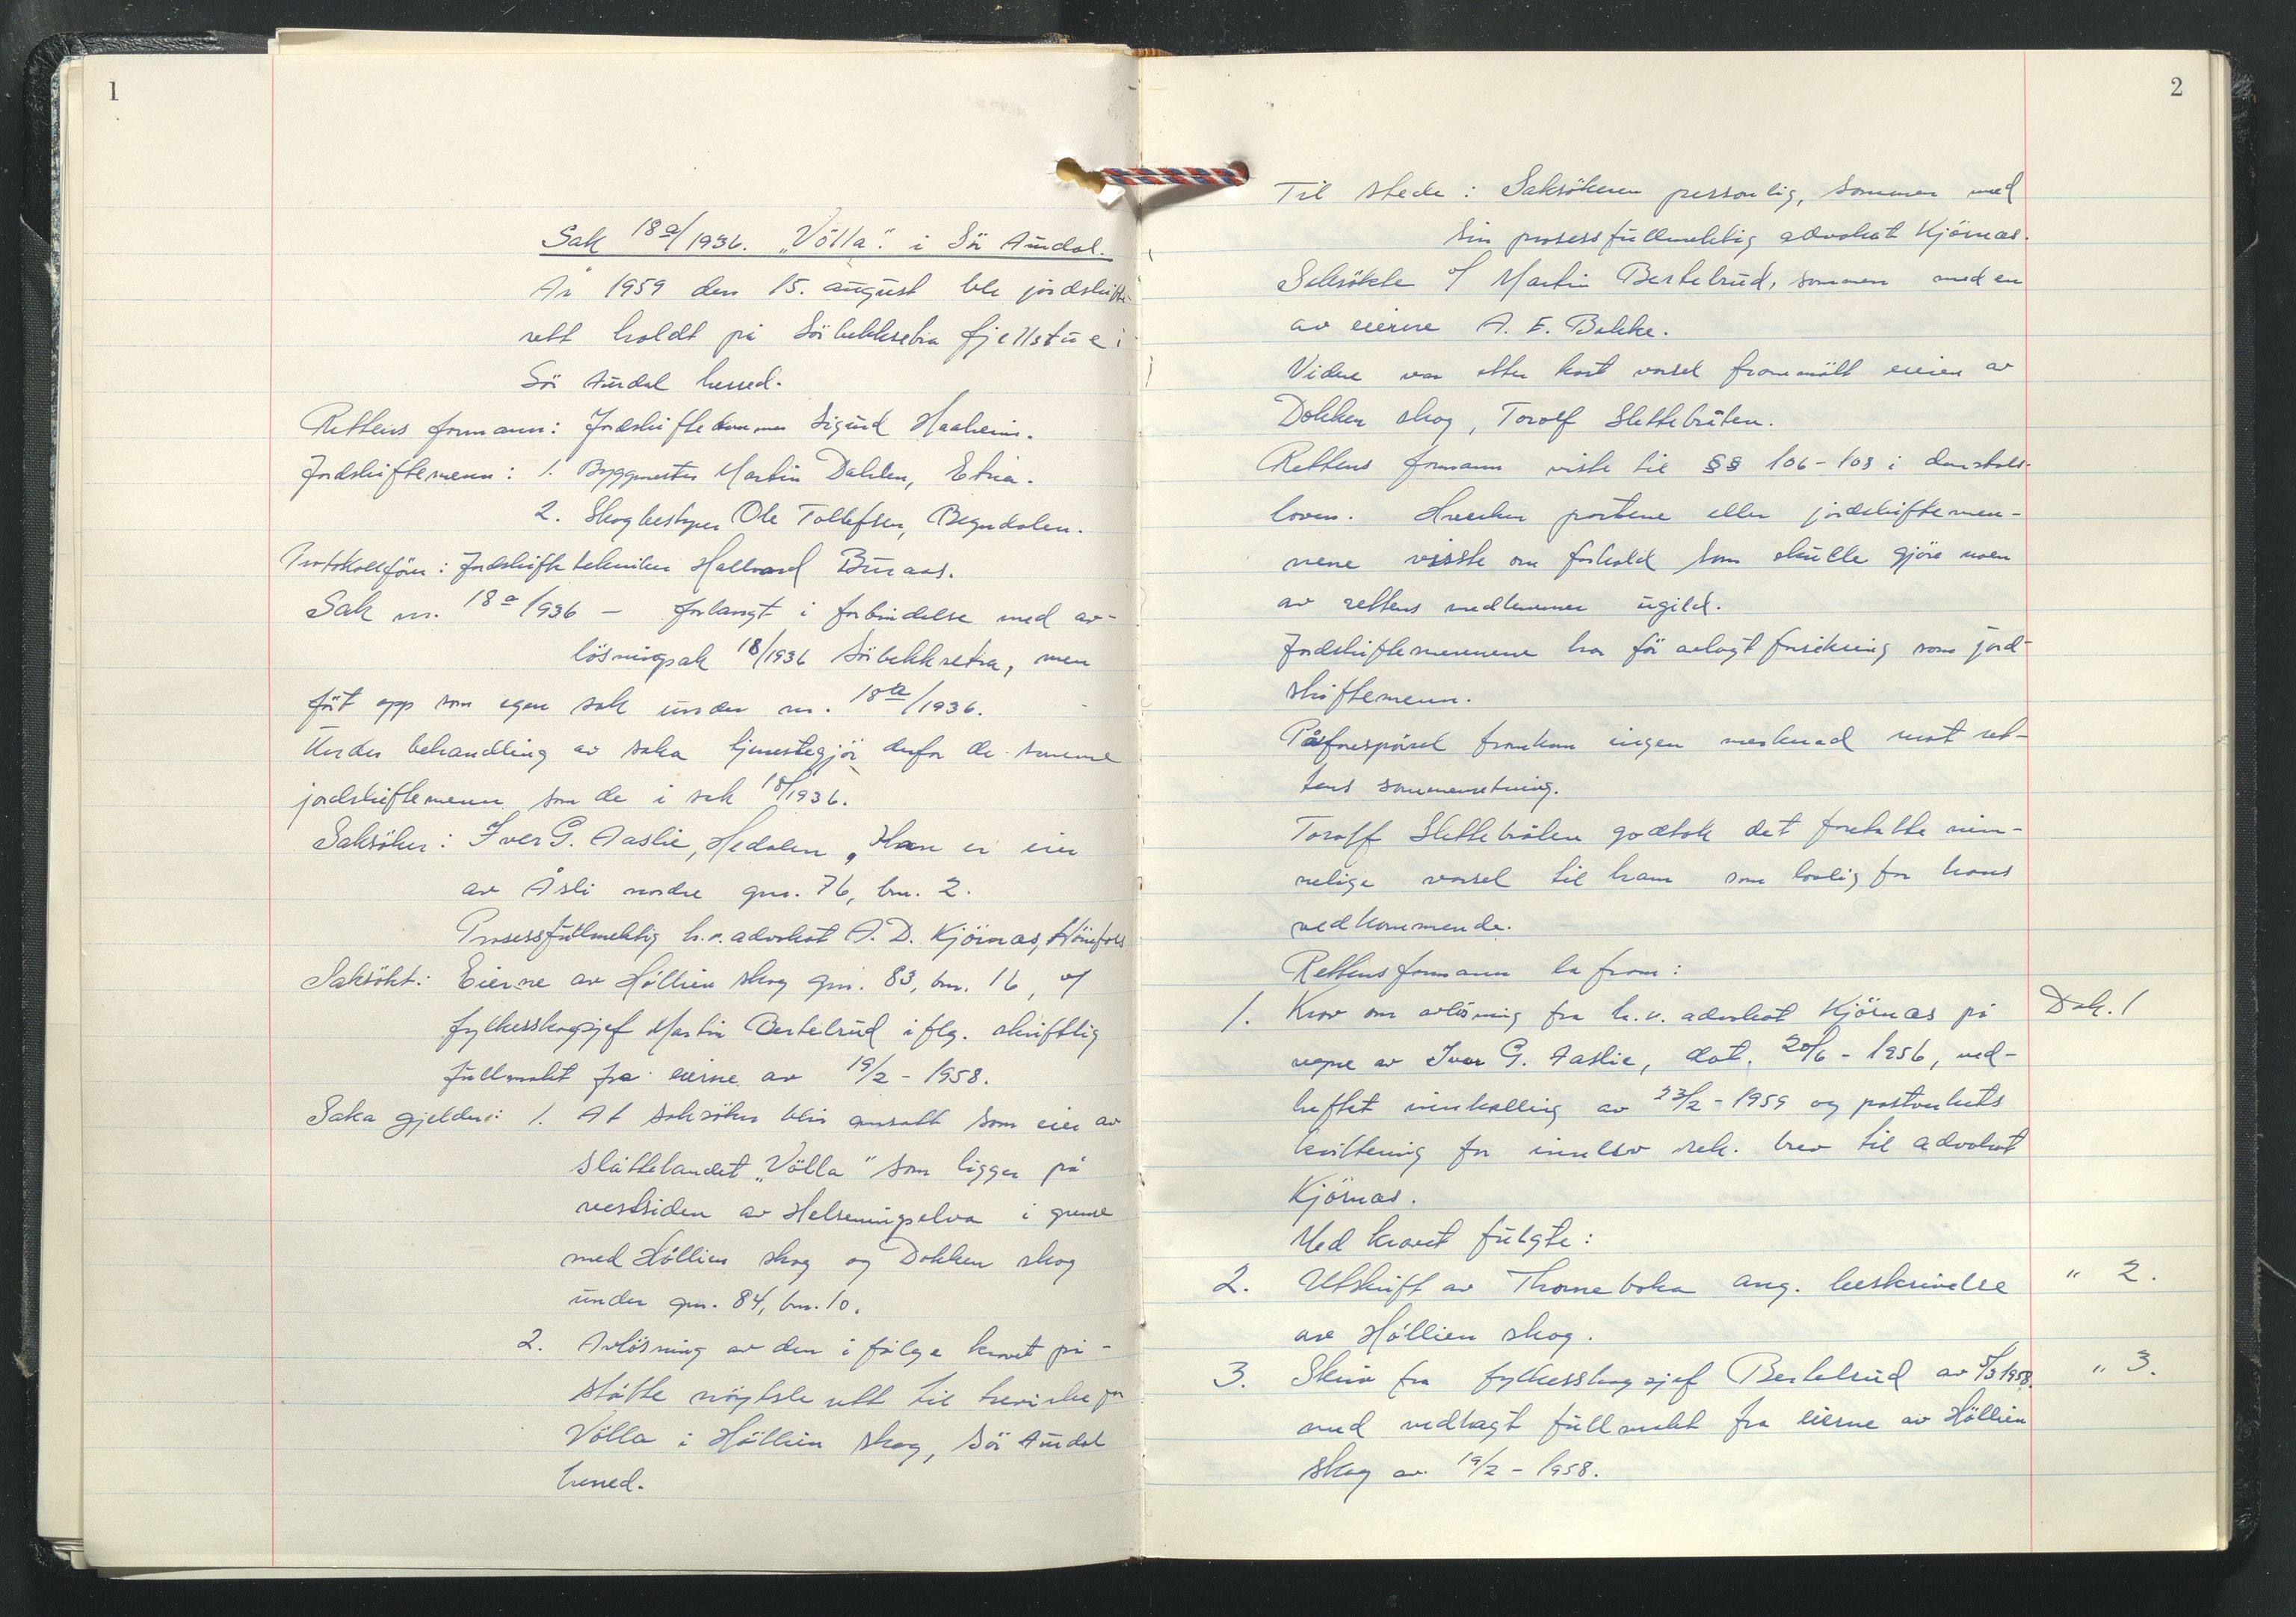 1
Sak 18a/1936. „Völla". i Sör Aurdal.
År 1959 den 15. august ble jordskifte-
rett holdt på Sörbekksetra fjellstue i
Sör Aurdal herred.
Rettens formann: Jordskiftedommer Sigurd Haaheim.
Jordskiftemenn: 1. Byggmester Martin Dahlen, Etna.
2. Skogbestyrer Ole Tollefsen, Begndalen.
Protokollförer: Jordskiftetekniker Hallvard Buraas.
Sak nr. 18a/1936 – forlangt i forbindelse med av-
lösningsak 18/1936 Sörbekksetra, men
fört opp som egen sak under nr. 18a/1936.
Under behandling av saka tjenestegjör derfor de samme
jordskiftemenn som de i sak 18/1936.
Saksöker: Iver G. Aaslie, Hedalen, Han er eier
av Åsli nordre gnr. 76, bnr. 2.
Prosessfullmektig h.r.advokat A.D. Kjörnæs, Hönefoss
Saksökt: Eierne av Höllien skog gnr. 83, bnr. 16, v/
fylkesskogsjef Martin Bertelrud iflg. skriftlig
fullmakt fra eierne av 19/2 - 1958.
Saka gjelder: 1. At saksöker blir ansatt som eier av
slåttelandet „Völla" som ligger på
vestsiden av Helseningselva i grense
med Höllien skog og Dokken skog
under gnr. 84, bnr. 10.
2. Avlösning av den i fölge kravet på-
ståtte nöytsle rett til trevirke for
Völla i Höllien skog, Sör Aurdal
herred.
2
Til stede: Saksökeren personlig, sammen med
sin prosessfullmektig advokat Kjörnæs.
Saksökte v/ Martin Bertelrud, sammen med en
av eierne A. E. Bakke.
Videre var etter kort varsel frammött eieren av
Dokken skog, Torolf Slettebråten.
Rettens formann viste til §§ 106-108 i domstols-
loven. Hverken partene eller jordskiftemen-
nene visste om forhold som skulle gjöre noen
av rettens medlemmer ugild.
Jordskiftemennene har för avlagt forsikring som jord-
skiftemenn.
På forespörsel framkom ingen merknad mot ret-
tens sammensetning.
Torolf Slettebråten godtok det foretatte rim-
melige varsel til ham som lovlig for hans
vedkommende.
Rettensformann la fram:
1. Krav om avlösning fra h.r. advokat Kjörnæs på Dok. 1
vegne av Iver G. Aaslie, dat. 20/6 - 1956, ved-
heftet innkalling av 23/2 - 1959 og postverkets
kvittering for innlev. rek. brev til advokat
Kjörnæs.
Med kravet fulgte:
2. Utskrift av Thorneboka ang. beskrivelse " 2.
av Höllien skog.
3. Skriv fra fylkesskogsjef Bertelrud av 5/3 1958. " 3.
med vedlagt fullmakt fra eierne av Höllien
skog av 19/2 - 1958.